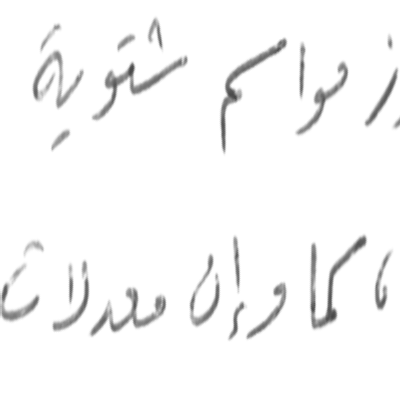 مواسم شتوية
كما وإن معدلات